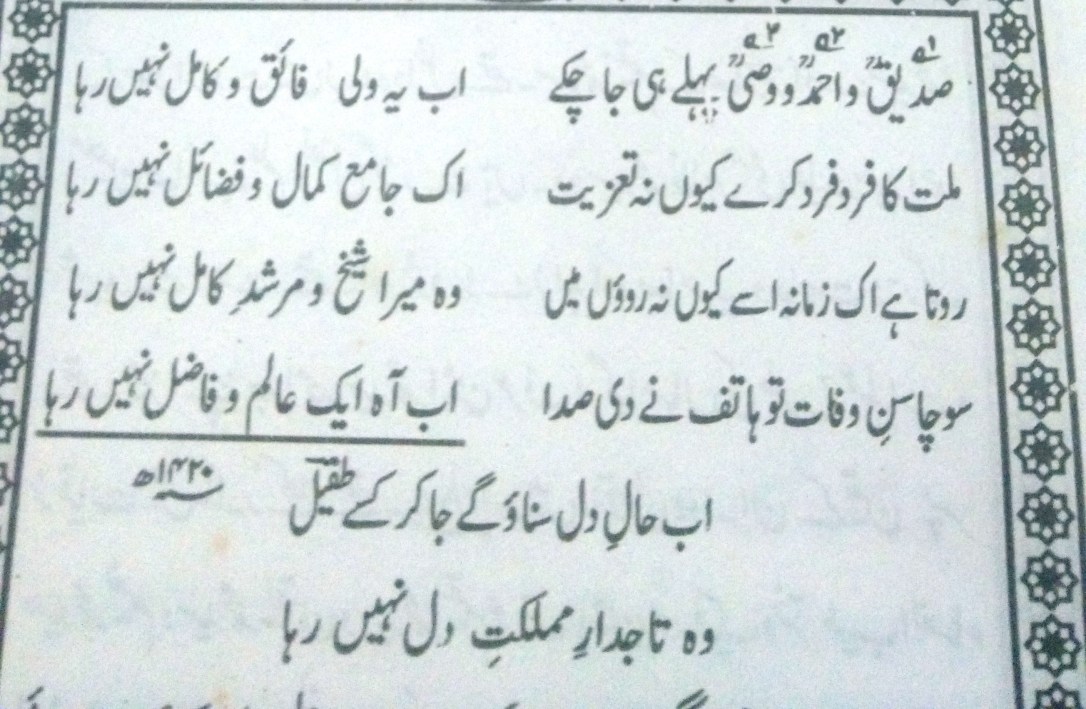 صدیقؒ و احمدؒ و وصیؒ پہلے ہی جا چکے اب یہ ولی فائق و کامل نہیں رہا
ملت کا فرد فرد کرے کیوں نہ تعزیت اک جامع کمال و فضائل نہیں رہا
روتا ہے اک زمانہ اسے کیوں نہ روؤں میں وہ میرا شیخ و مرشدِ کامل نہیں رہا
سوچا سنِ وفات تو ہاتف نے دی صدا اب آہ ایک عالم و فاضل نہیں رہا
۱۴۲۰ھ
اب حالِ دل سناؤ گے جا کر کسے طفیل
وہ تاجدارِ مملکتِ دل نہیں رہا